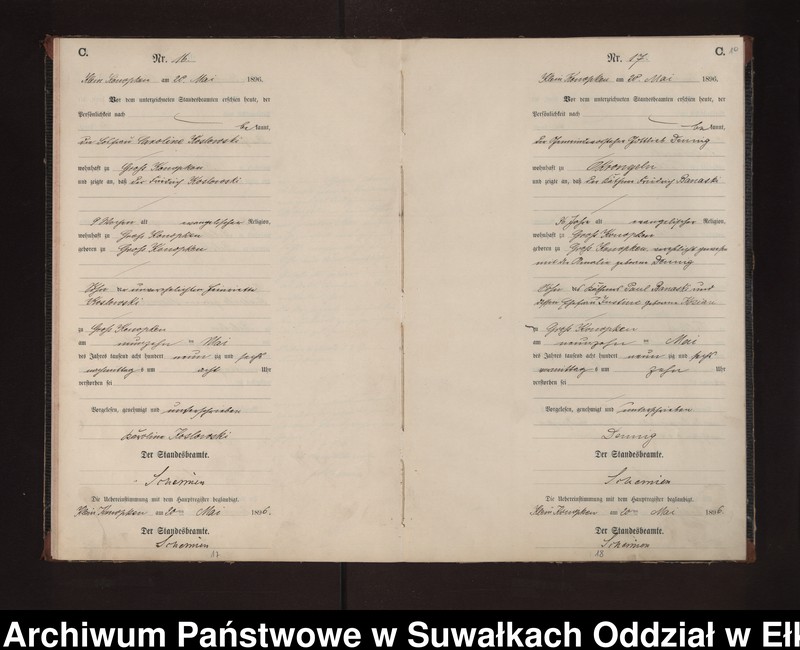 C.
Nr. 16.
Klein Konopken am 20. Mai 1896.
Vor dem unterzeichneten Standesbeamten erschien heute, der
Persönlichkeit nach
be kannt,
die Losfrau Caroline Koslowski
wohnhaft zu Groß Konopken
und zeigte an, daß der Friedrich Koslowski
alt evangelischer Religion,
wohnhaft zu Groß Konopken
geboren zu Groß Konopken
Sohn der unverehelichten
Koslowski
zu Groß Konopken
am neunzehn ten Mai
des Jahres tausend acht hundert neun zig und sechs
nachmittag s um acht Uhr
verstorben sei
Vorgelesen, genehmigt und unterschrieben
Karoline Koslowski
Der Standesbeamte.
Schemien
Die Uebereinstimmung mit dem Hauptregister beglaubigt.
Klein Konopken am 20ten Mai 1896.
Der Standesbeamte.
Schemien
17
C.
Nr. 17.
Klein Konopken am 20. Mai 1896.
Vor dem unterzeichneten Standesbeamten erschien heute, der
Persönlichkeit nach
be kannt,
der Gemeindevorsteher Gottlieb Dennig
wohnhaft zu
und zeigte an, daß der Käthner Friedrich Banaski
Jahre alt evangelischer Religion,
wohnhaft zu Groß Konopken
geboren zu Groß Konopken, verehelicht gewesen
mit der Amalie geborene Dennig
Sohn des Käthners Paul Banaski und
dessen Ehefrau Justine geborene
zu Groß Konopken
am neunzehn ten Mai
des Jahres tausend acht hundert neun zig und sechs
vormittag s um zehn Uhr
verstorben sei
Vorgelesen, genehmigt und unterschrieben
Dennig
Der Standesbeamte.
Schemien
Die Uebereinstimmung mit dem Hauptregister beglaubigt.
Klein Konopken am 20ten Mai 1896
Der Standesbeamte.
Schemien
18
Archiwum Państwowe w Suwałkach Oddział w Ełk